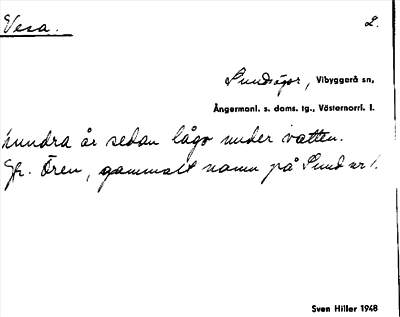 Vesa. 2.
Sundsågor, Vibyggerå sn,
Ångermanl. s. doms. tg., Västernorrl. l.
hundra år sedan lågo under vatten.
Jfr. Ören, gammalt namn på Sund nr 1.
Sven Hiller 1948